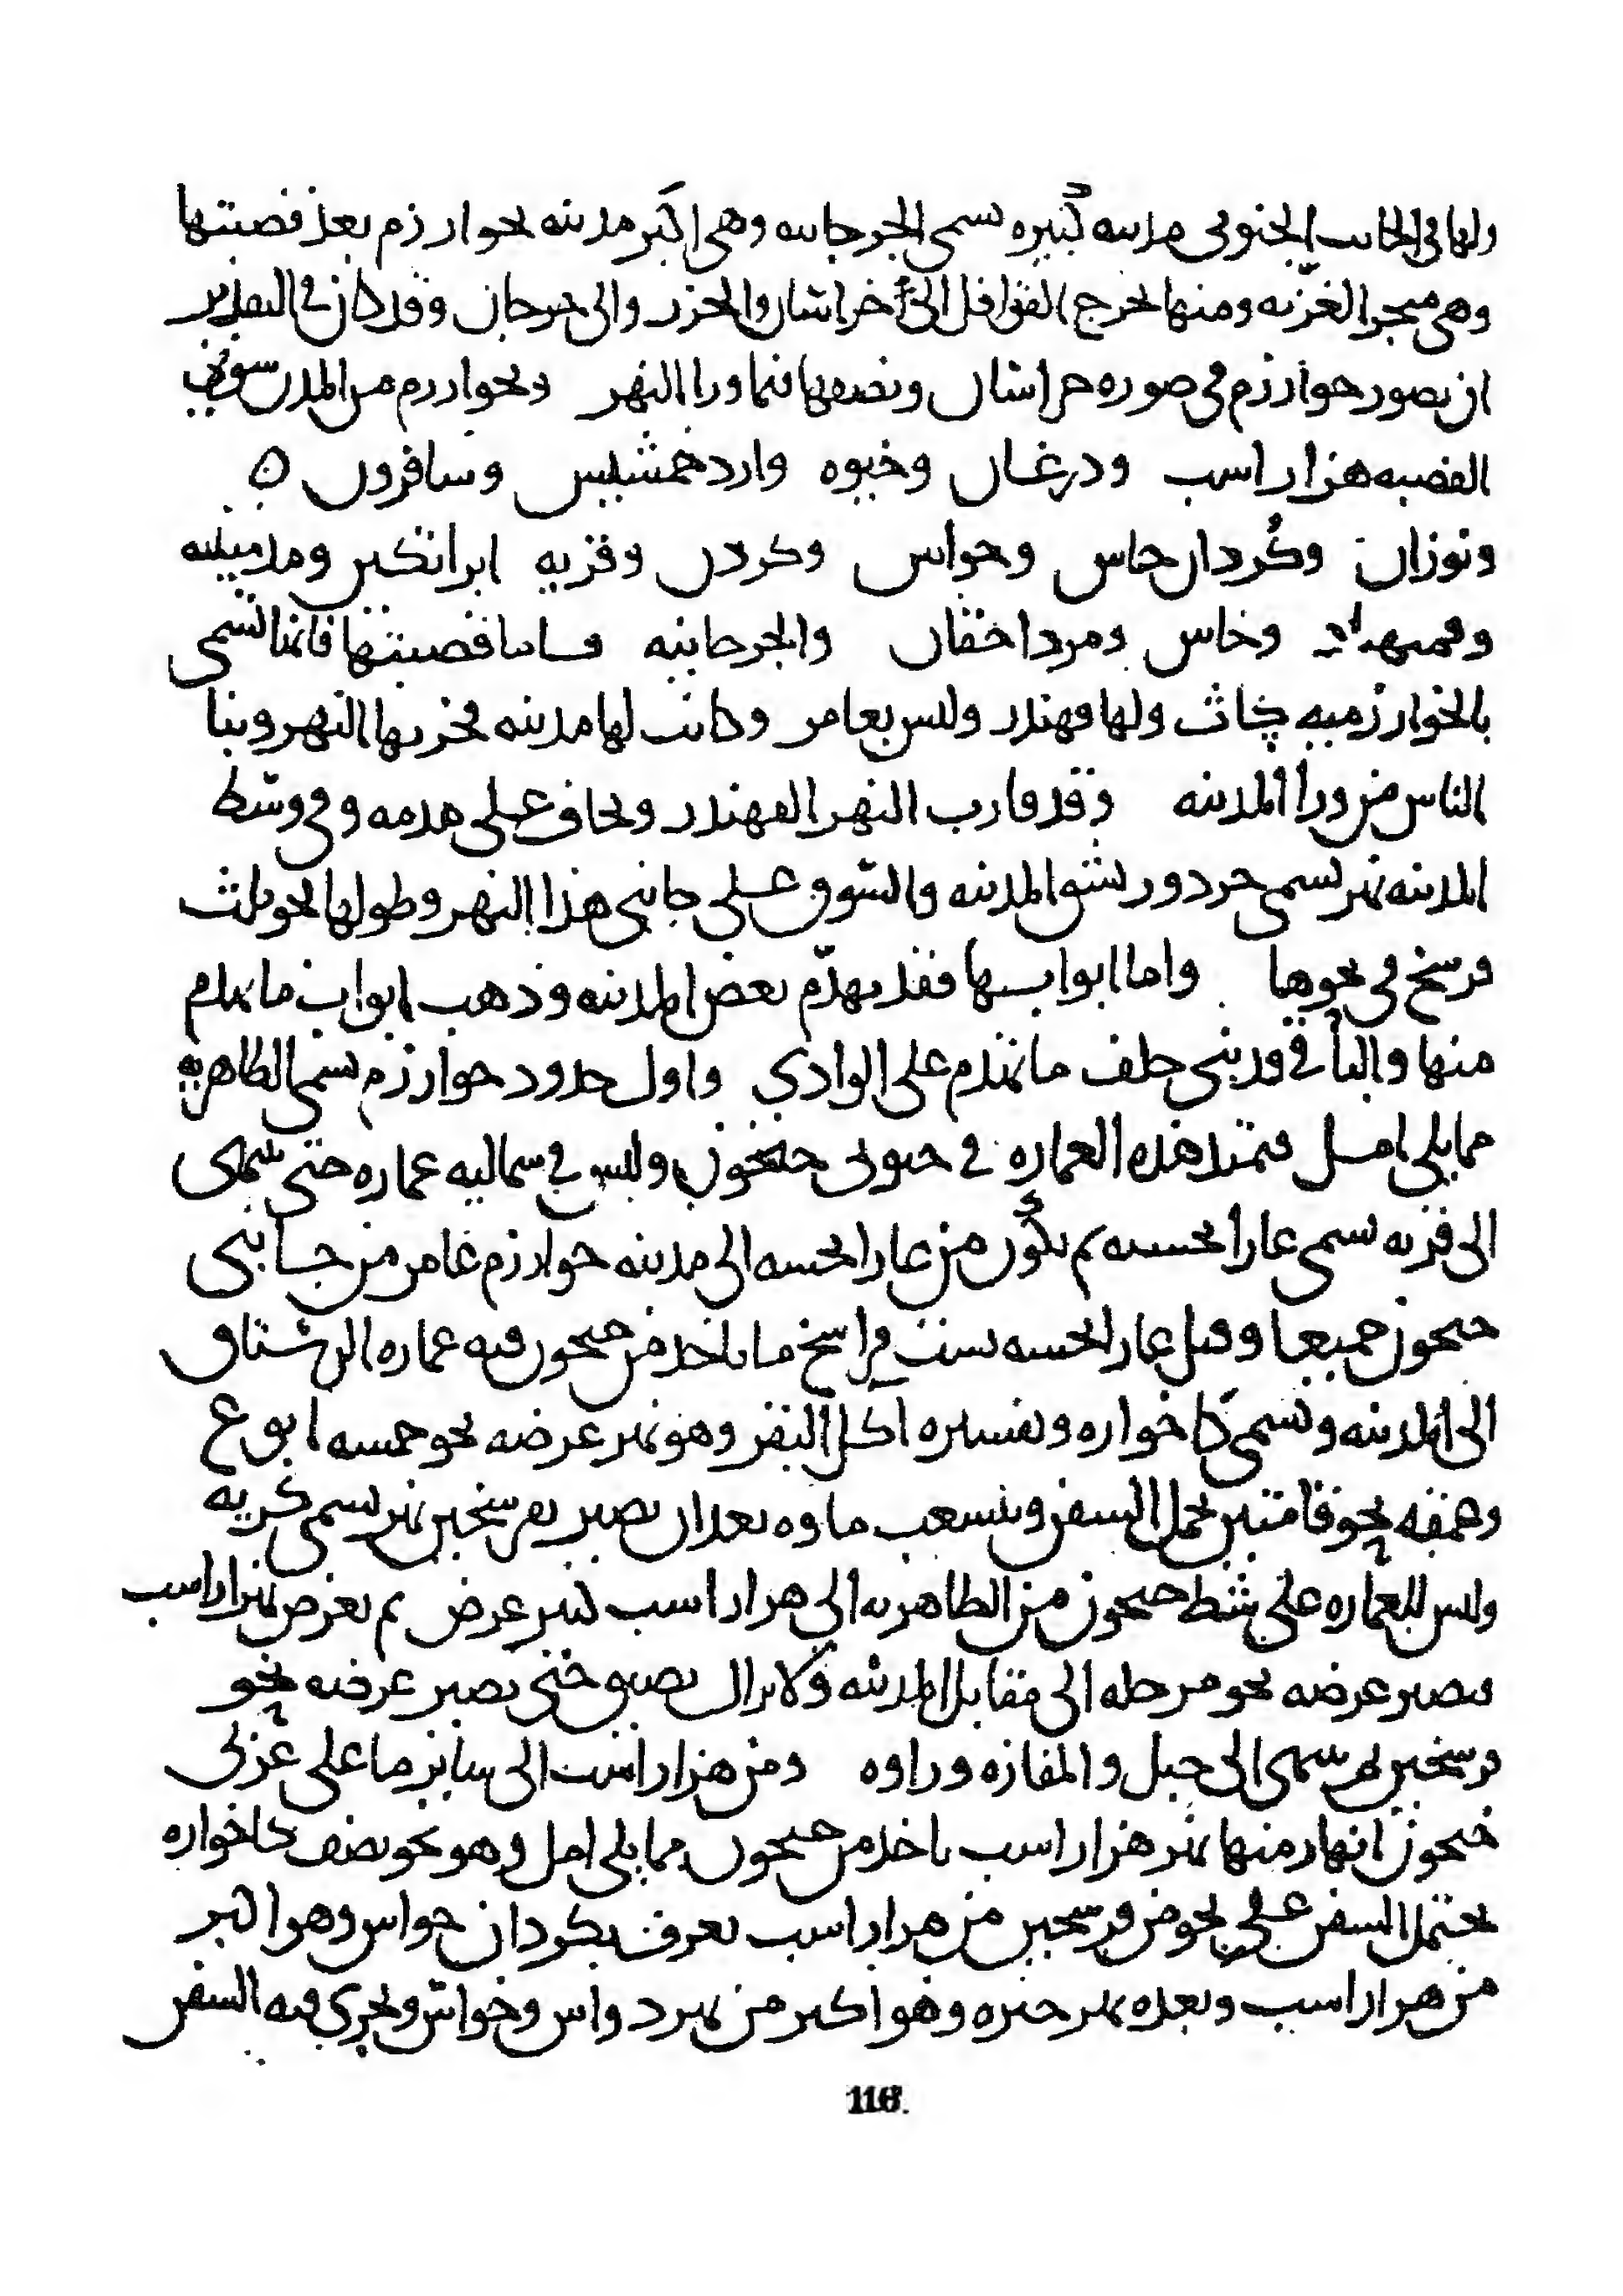 ولها في الجانب الجنوبي مدينه كبيره تسمى الجرجانيه وهى اكبر مدينه بخوارزم بعد قصبتها
وهى متجر الغزيه ومنها تخرج القوافل الى خراسان والخزر والى جرجان وقد كان في التقدير
ان نصور خوارزم في صوره خراسان ونصفها فيما ورا النهر وبخوارزم من المدن سوى
القصبه هزاراسب ودرغان وخيوه واردخشميثن وسافردن
ونوزان وكردان خاس وخواس وكردر وقريه براتكين ومدمينيه
وخاس ومرداجقان والجرجانيه فاما قصبتها فانها تسمى
بالخوارزميه كاث ولها قهندر وليس بعامر وكانت لها مدينه فخربها النهر وبنا
الناس من ورا المدينه وقد قارب النهر القهندر ويخاف على هدمه وفي وسط
المدينه نهر يسمى جردور يشق المدينه والسوق على جانبى هذا النهر وطولها نحو ثلث
فرسخ في نحوها واما ابوابها فقد تهدم بعض المدينه وذهب ابواب ما تهدم
منها والباقى قد بنى خلف ما تهدم على الوادي واول حدود خوارزم تسمى الطاهريه
مما يلي امل فتمتد هذه العماره في جنوبى جيحون وليس في شماليه عماره حتى تنتهى
الى قريه تسمى غارا بخشنه ثم تكون من غارا بخشنه الى مدينه خوارزم عامر من جانبى
جيحون جميعا وقبل غارا بخشنه بست فراسخ ما ياخذ من جيحون فيه عماره الرستاق
الى المدينه وتسمى كاخواره وتفسيره اكل البقر وهو نهر عرضه نحو خمسه ابوع
وعمقه نحو قامتين يحمل السفن ويتشعب ماوه بعد ان يصير فرسخين نهر يسمى كريه
وليس للعماره على شط جيحون من الطاهريه الى هزاراسب كثير عرض ثم تعرض بهزاراسب
فيصير عرضه نحو مرحله الى مقابل المدينه ولا يزال يضيق حتى يصير عرضه نحو
فرسخين ثم ينتهى الى جبل والمفازه وراوه ومن هزاراسب الى ساير ما على غربى
جيحون انهار منها نهر هزاراسب ياخذ من جيحون مما يلي امل وهو نحو نصف كاخواره
يحتمل السفن على نحو من فرسخين من هزاراسب يعرف بكردان خواس وهو اكبر
من هزاراسب وبعده نهر خيره وهو اكبر من نهر كردان خواس وتجري فيه السفن
116